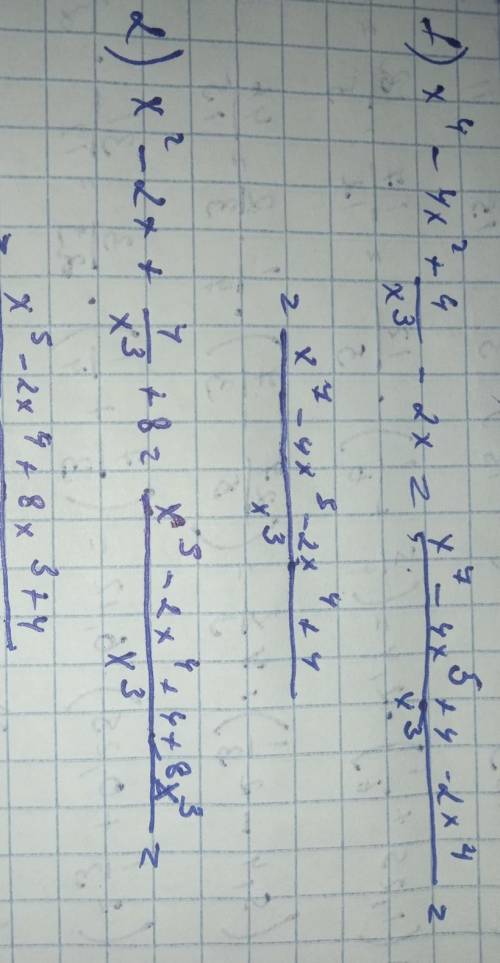 1) x⁴ - 4x² + 4/x³ - 2x = (x⁷ - 4x⁵ + 4 - 2x⁴)/x³ =
= (x⁷ - 4x⁵ - 2x⁴ + 4)/x³
2) x² - 2x + 4/x³ + 8 = (x⁵ - 2x⁴ + 4 + 8x³)/x³ =
x⁵ - 2x⁴ + 8x³ + 4